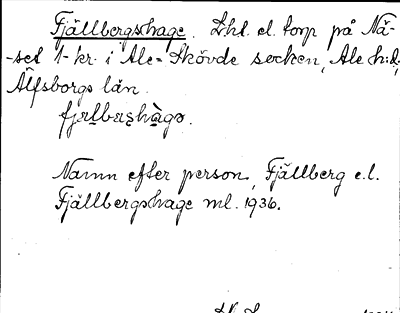 Fjällbergshage. Lht. el. torp på Nä-
-set 1-kr. i Ale-Skövde socken, Ale h:d,
Älfsborgs län.
Namn efter person, Fjällberg e.l.
Fjällbergshage ml. 1936.